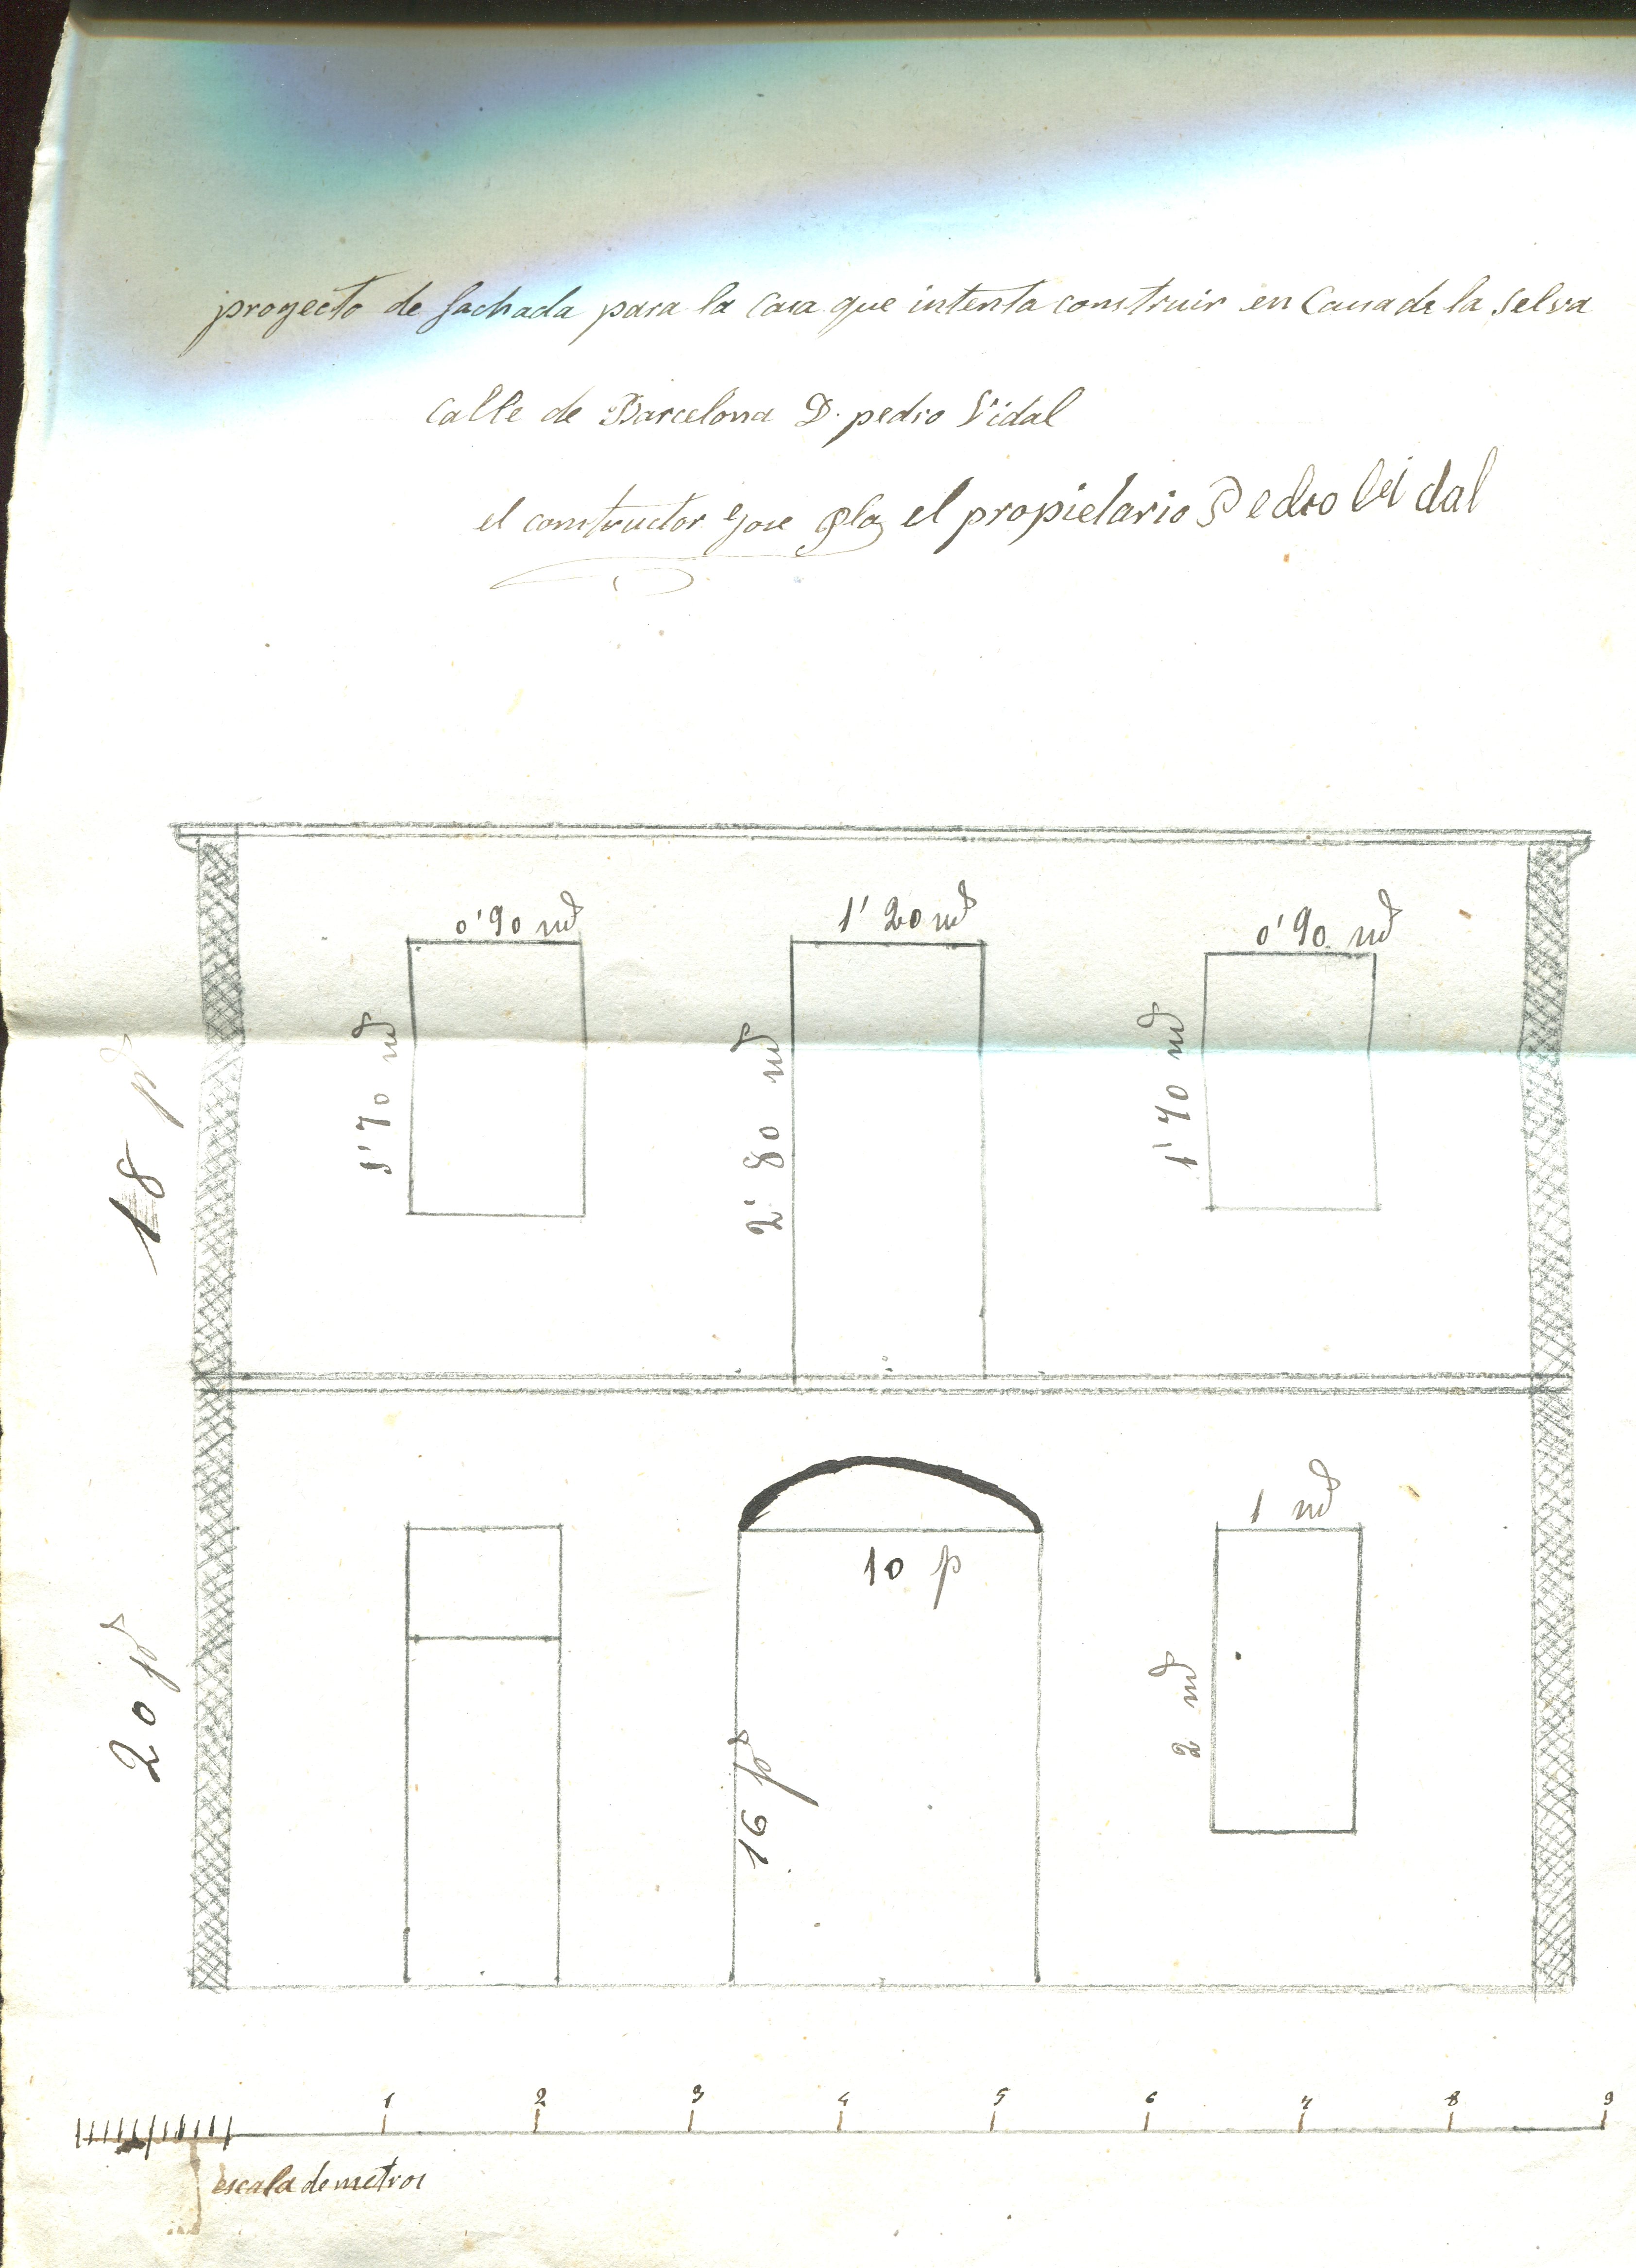 proyecto de fachada para la casa que intenta construir en Casa de la Selva
calle de Barcelona D. pedro Vidal
el constructor Jose Pla el propietario Pedro Vidal
0'90 m
1'20 m
0'90 m
1'70 m
2'80 m
1'70 m
18 p
1 m
10 p
2 m
16 p
20 p
1 2 3 4 5 6 7 8 9
escala de metros